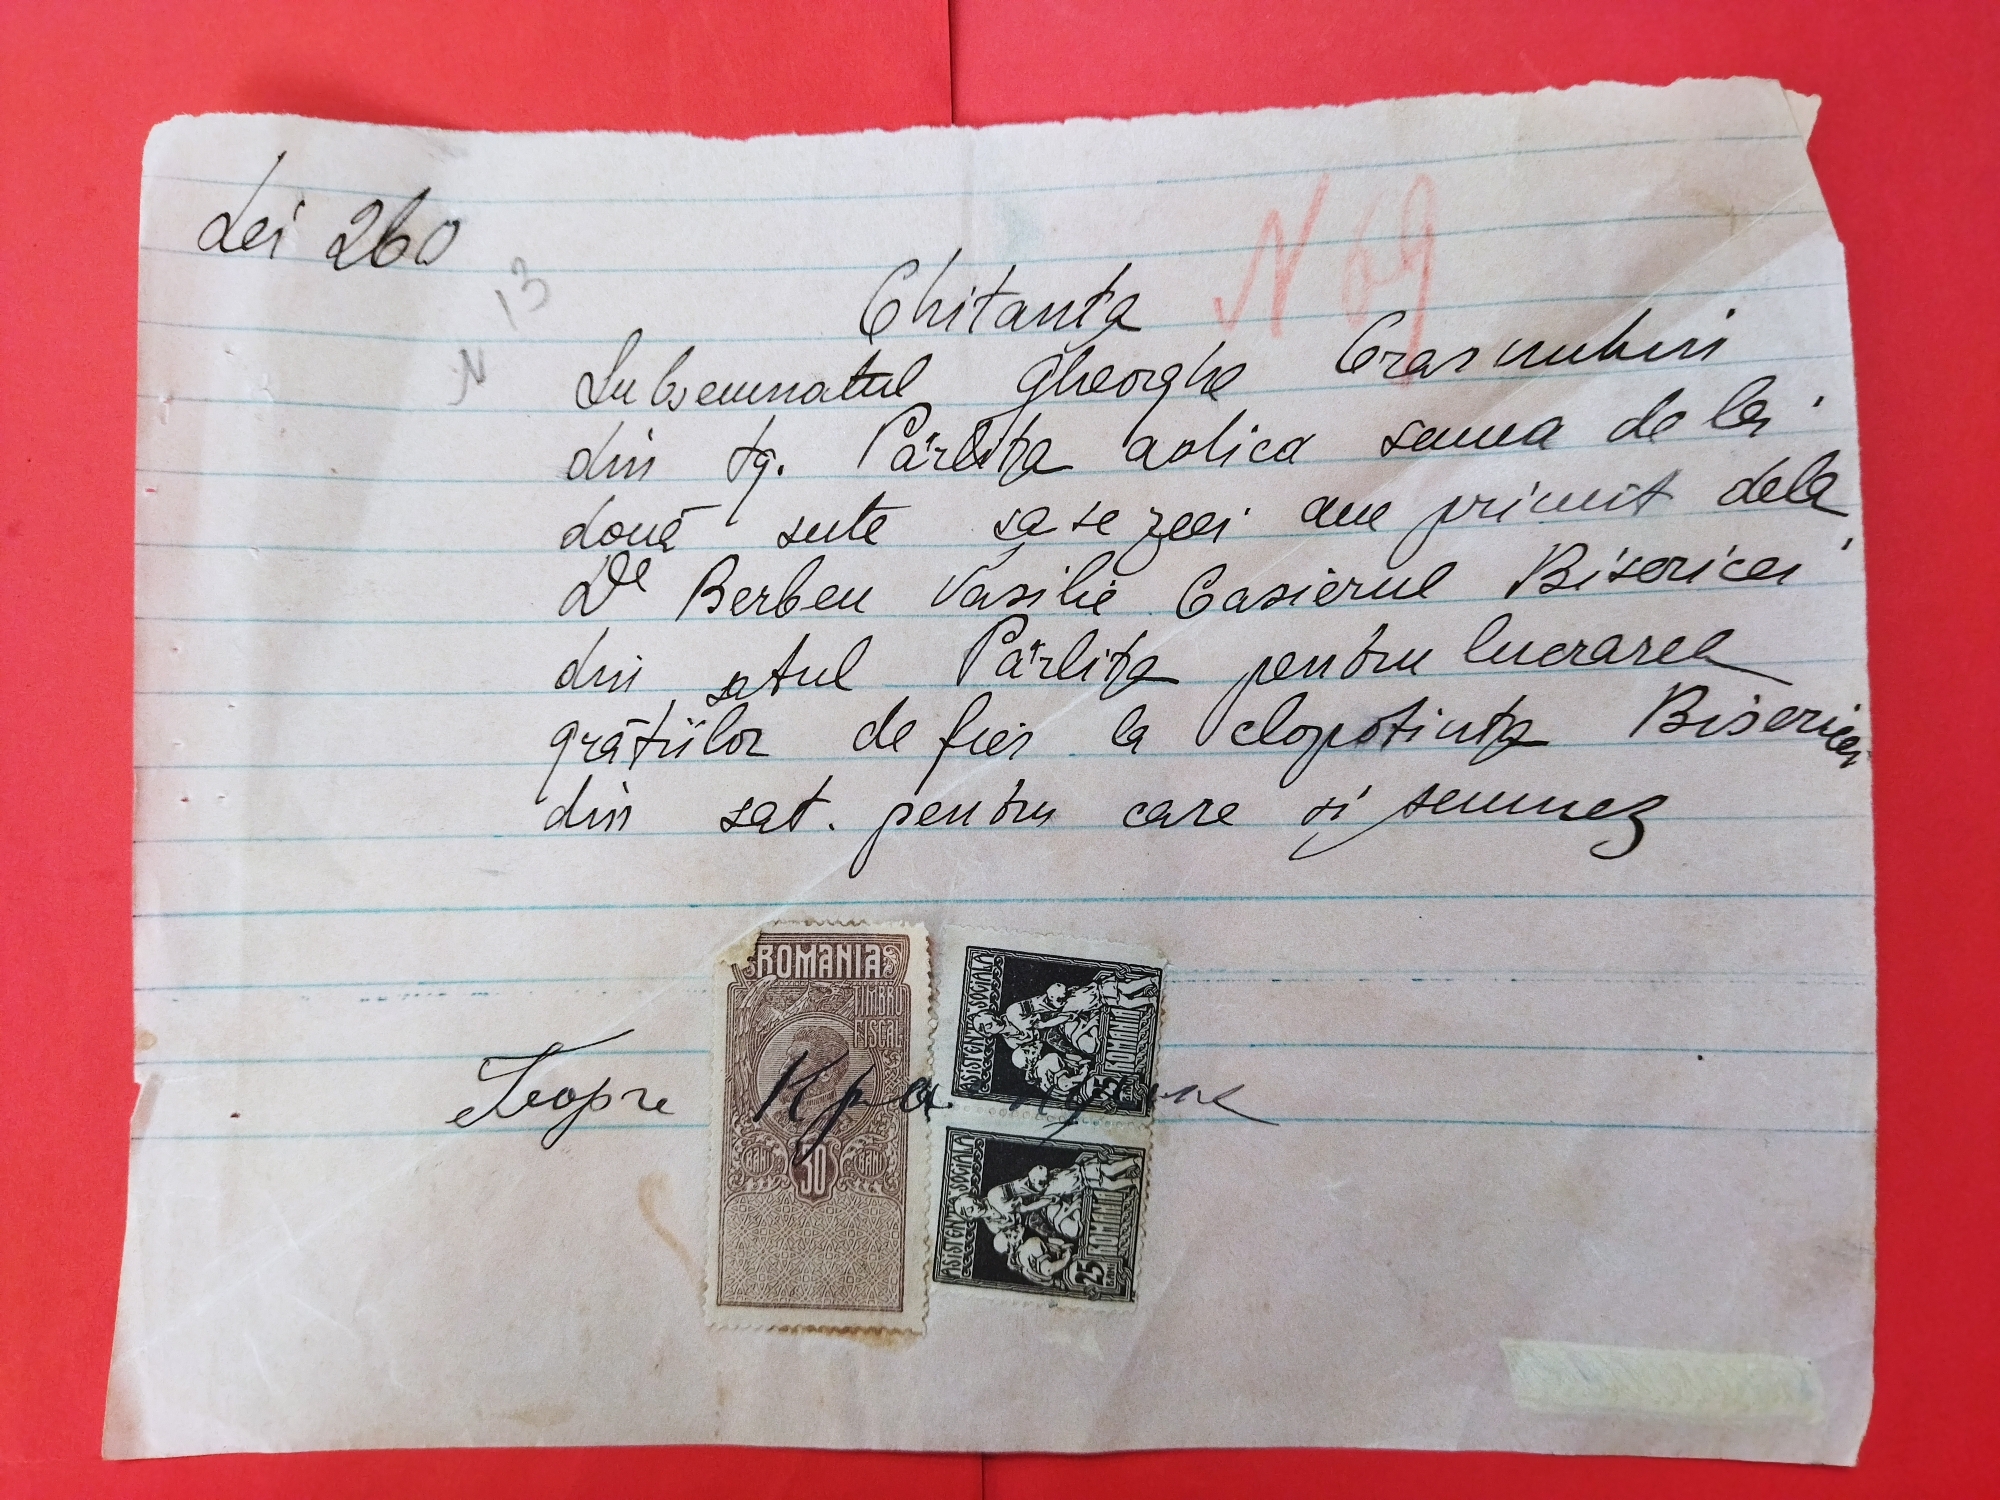 Lei 260
N 13
N 69
Chitanta
Subsemnatul Gheorghe
din tg. Pârlița adica suma de lei
două sute sasezeci am primit dela
Dl Berbeu Vasilie Casierul Bisericei
din satul Pârlița pentru lucrarea
grătiilor de fier la clopotința Bisericei
din sat. pentru care si semnez
ROMANIA
TIMBRU
FISCAL
BANI 30 BANI
ASISTENȚA SOCIALĂ
ROMANIA
25 BANI
ASISTENȚA SOCIALĂ
ROMANIA
25 BANI